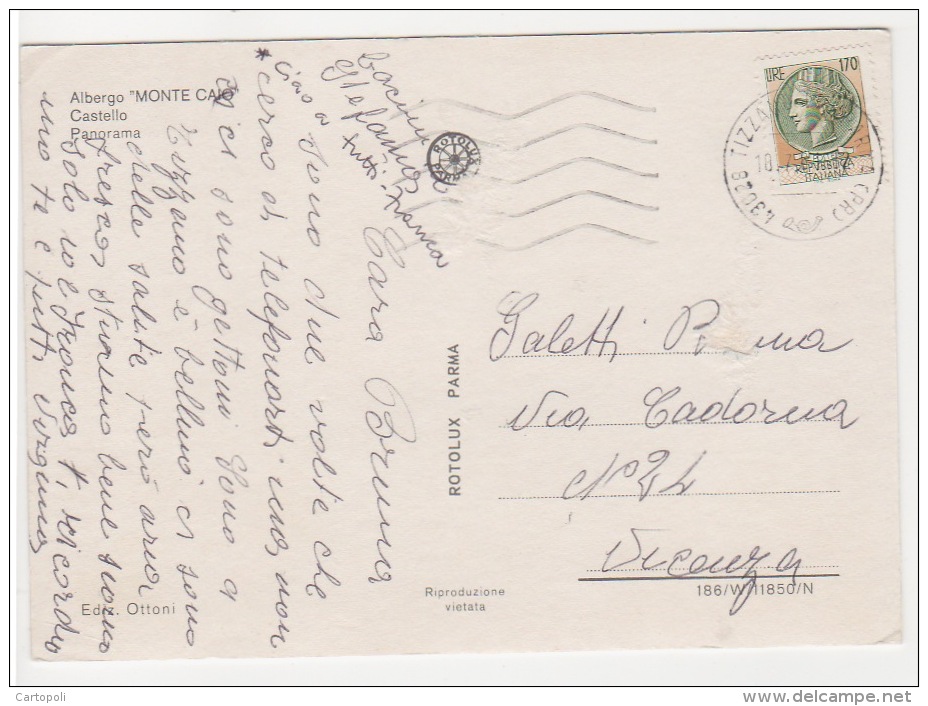 Albergo "MONTE CAIO"
Castello
Panorama
Cara Bruna
sono due volte che
*cerco di telefonarti ma non
ci sono gettoni sono a
Tizzano è bellino ci sono
delle salite però aria
fresca stiamo bene siamo
solo io e Franca ti ricordo
uno te e tutti Virginia
bacini
Stefania e
ciao a tutti Franca
ROTOLUX
PARMA
ROTOLUX PARMA
Ediz. Ottoni
Riproduzione
vietata
186/W/11850/N
LIRE 170
REPUBBLICA
ITALIANA
43028 TIZZANO (PR)
Galetti Bruna
Via Cadorna
N° 34
Vicenza
Cartopoli
www.delcampe.net